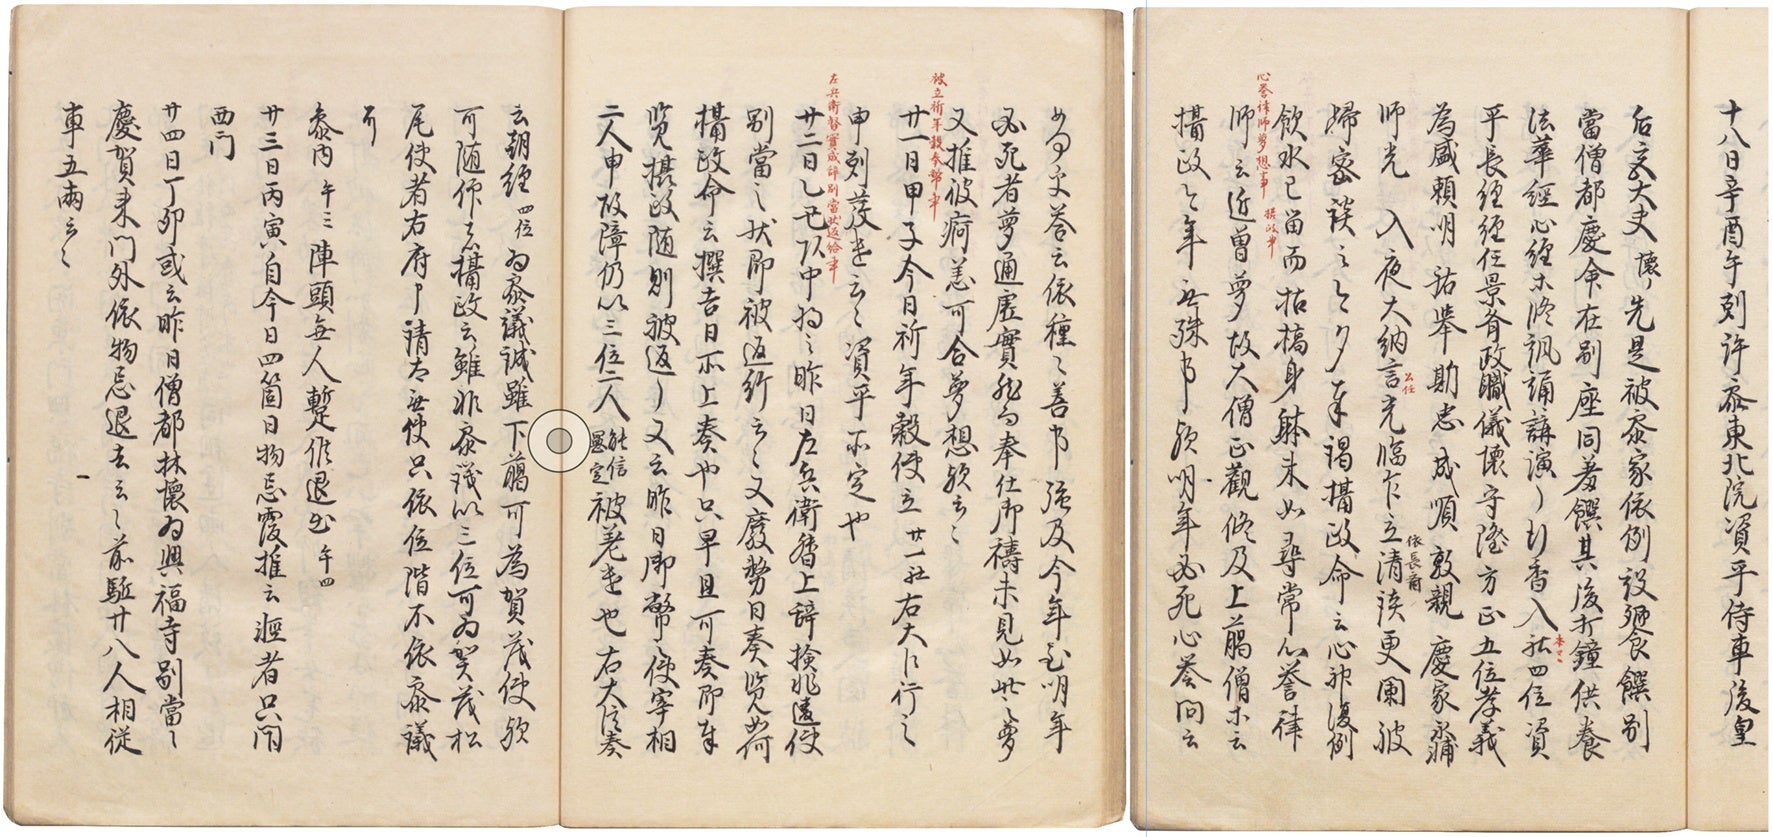 十八日辛酉午剋許参東北院資平侍車後皇
后宮大夫懐々先是被参家依例設麺食饌別
當僧都慶命在別座同羞饌其後打鐘供養
法華経心経末終諷誦講演了行香入
本マヽ
社四位資
平長経経任景斉政職儀懐守隆方正五位孝義
為盛頼明詁挙助忠成順敦親慶家永輔
師光入夜大納言
公任
光臨乍立清談
依長斎
更闌被
帰密談之々夕奉謁摂政命云心神復例
飲水已留而枯槁身躰未如尋常心誉律
心誉律師夢想事
摂政事
師云近曽夢故大僧正観修及上臈僧等云
摂政今年無殊事歟明年必死心誉問云
如何文答云依種々善事強及今年至明年
必死者夢通虚實能可奉仕御禱未見如此之夢
又推彼病恙可合夢想歟云々
被立祈年穀奉幣事
廿一日甲子今日祈年穀使立廿一社右大臣行之
申剋發遣云々資平所定也
左兵衛督實成辞別當状返給事
廿二日乙丑頭中将云昨日左兵衛督上辞検非違使
別當之状即被返約云々又廢務日奏覧如何
摂政命云撰吉日所上奏也只早且可奏即奉
覧摂政随則被返了又云昨日御幣使宰相
二人申故障仍以三位二人
能信
兼定
被差遣也右大臣奏
云朝経
四位
為参議誠雖下臈可為賀茂使歟
可随仰者摂政云雖非参議以三位可為賀茂松
尾使者右府申請者無使只依位階不依参議
了
参内
午三
陣頭無人暫候退出
午四
廿三日丙寅自今日四箇日物忌覆推云軽者只開
西門
廿四日丁卯或云昨日僧都林懐為興福寺別當々
慶賀来門外依物忌退去云々前駈廿八人相従
車五両云々